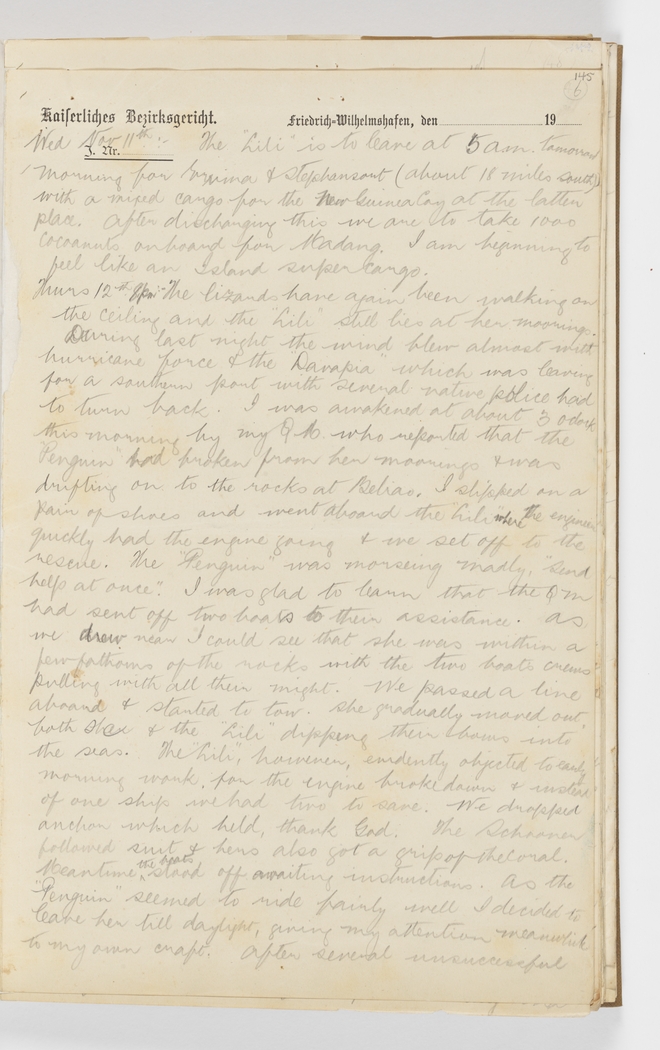 145
6
Kaiserliches Bezirksgericht. Friedrich-Wilhelmshafen, den 19
J. Nr.
Wed Nov 11th :- The "Lili" is to leave at 5 a.m. tomorrow
morning for Erima & Stephansort (about 18 miles south)
with a mixed cargo for the New Guinea Coy at the latter
place. After discharging this we are to take 1000
cocoanuts onboard for Madang. I am beginning to
feel like an Island super cargo.
Thurs 12th The lizards have again been walking on
the ceiling and the "Lili" still lies at her moorings.
During last night the wind blew almost with
hurricane force & the "Davapia" which was leaving
for a southern port with several native police had
to turn back. I was awakened at about 3 o'clock
this morning by my Q.M. who reported that the
"Penguin" had broken from her moorings & was
drifting on to the rocks at Beliao. I slipped on a
pair of shoes and went aboard the "Lili" where the engineer
quickly had the engine going & we set off to the
rescue. The "Penguin" was morseing madly, "send
help at once". I was glad to learn that the Q M
had sent off two boats to their assistance. As
we drew near I could see that she was within a
few fathoms of the rocks with the two boats crews
pulling with all their might. We passed a line
aboard & started to tow. She gradually moved out,
both she & the "Lili" dipping their bows into
the seas. The "Lili", however, evidently objected to early
morning work, for the engine broke down & instead
of one ship we had two to save. We dropped
anchor which held, thank God. The Schooner
followed suit & hers also got a grip of the coral.
Meantime the boats stood off awaiting instructions. As the
"Penguin" seemed to ride fairly well I decided to
leave her till daylight, giving my attention meanwhile
to my own craft. After several unsuccessful